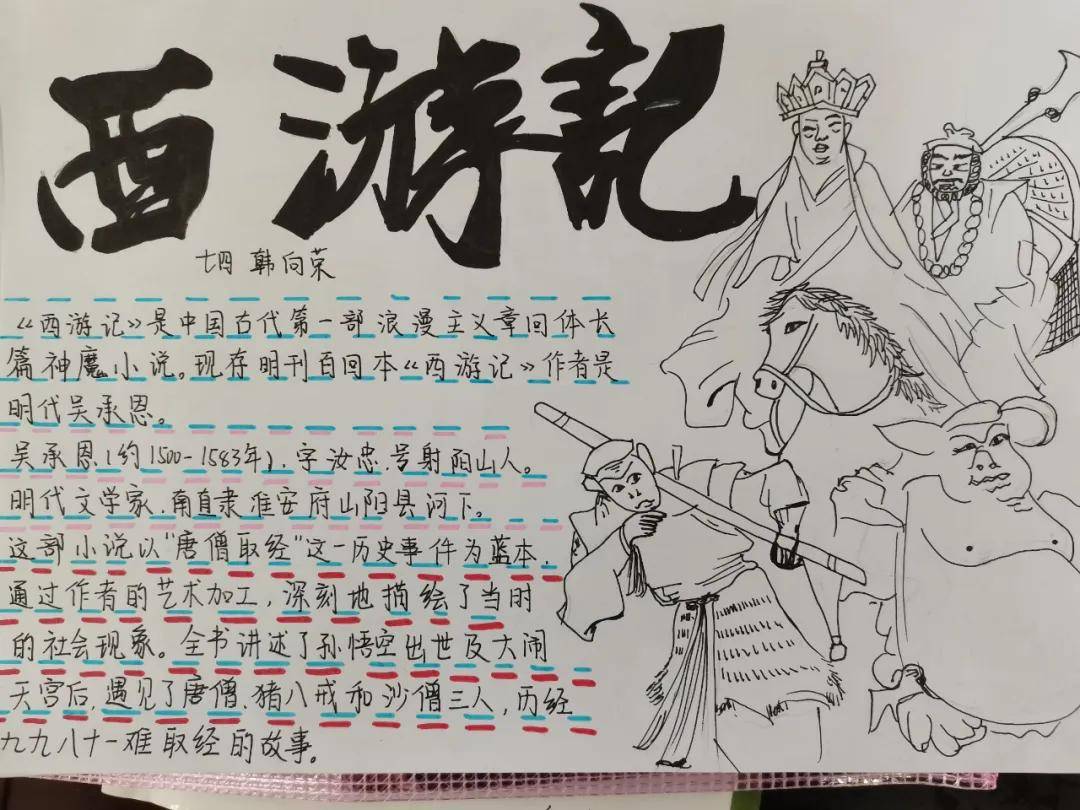 西游記
七四 韩向荣
《西游记》是中国古代第一部浪漫主义章回体长
篇神魔小说。现存明刊百回本《西游记》作者是
明代吴承恩。
吴承恩(约1500-1583年),字汝忠,号射阳山人。
明代文学家,南直隶淮安府山阳县河下。
这部小说以"唐僧取经"这一历史事件为蓝本,
通过作者的艺术加工,深刻地描绘了当时
的社会现象。全书讲述了孙悟空出世及大闹
天宫后,遇见了唐僧、猪八戒和沙僧三人,历经
九九八十一难取经的故事。